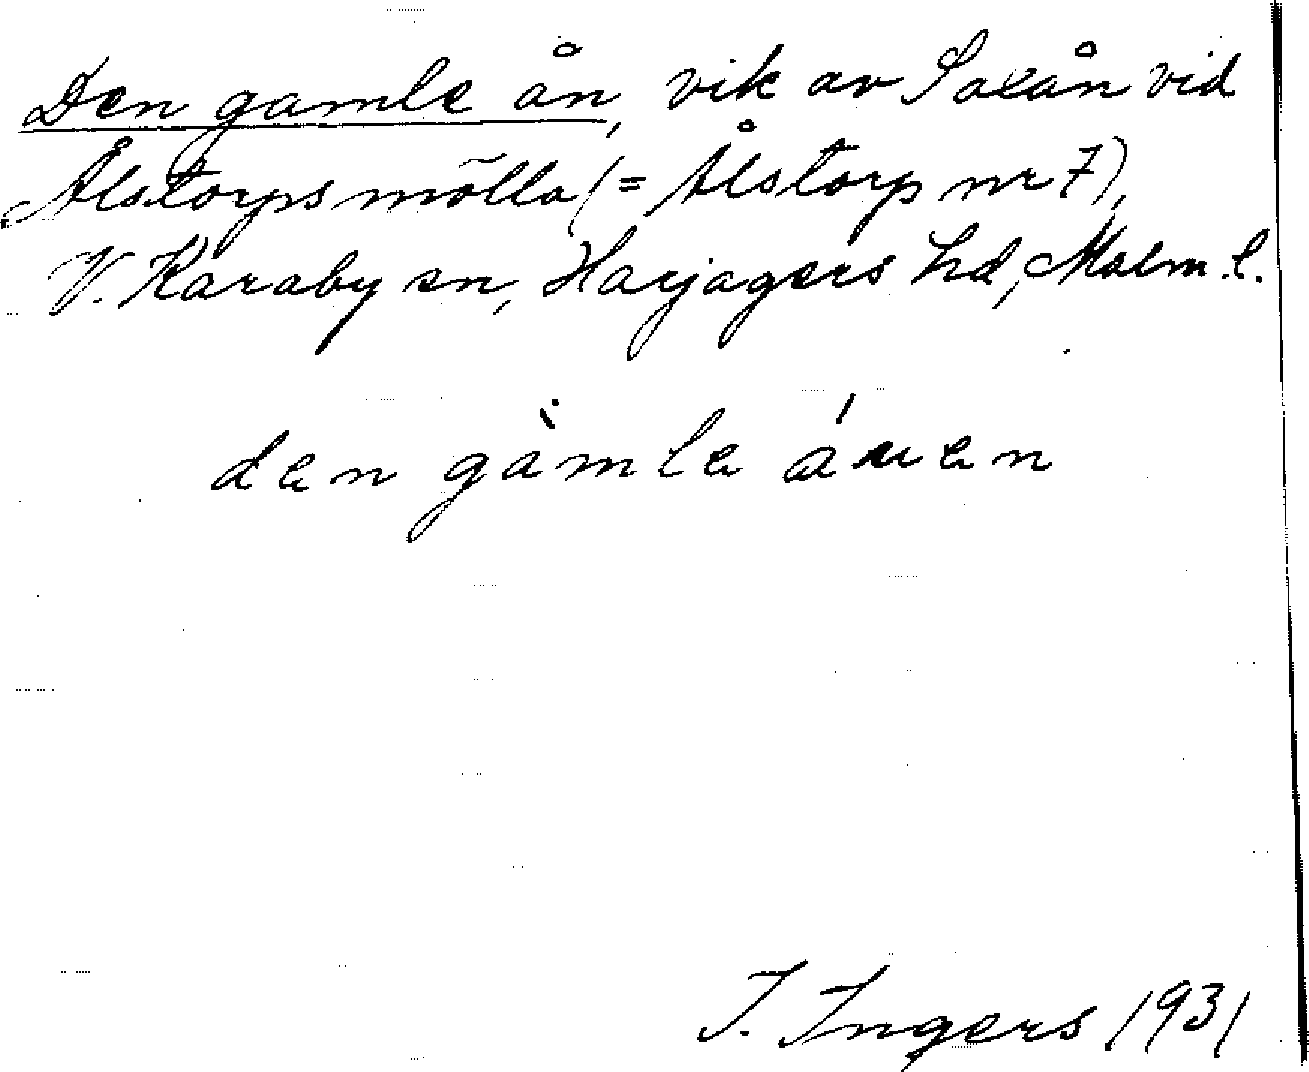 Den gamle ån, vik av Saxån vid
Ålstorps mölla (= Ålstorp nr 7),
V. Karaby sn, Harjagers hd, Malm. l.
den gàmle áuen
I. Ingers 1931